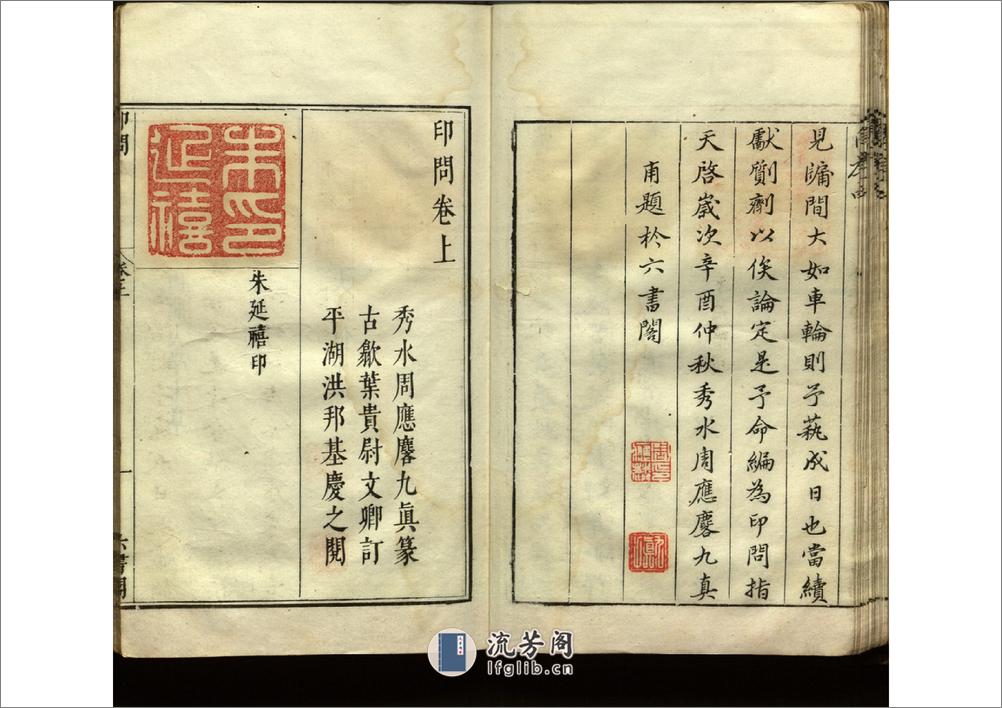 見牗間大如車輪則予蓺成日也當續
獻質劑以俟論定是予命編為印問指
天啓嵗次辛酉仲秋秀水周應麐九真
甫題於六書閣
印問卷上
秀水周應麐九眞篆
古歙葉貴尉文卿訂
平湖洪邦基慶之閱
朱印延禧
朱延禧印
印問
卷上
一
六書閣
流芳阁
lfglib.cn